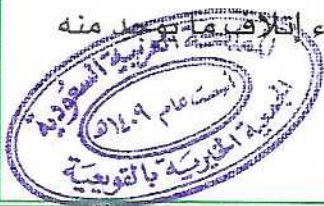 ء إتلاف ما يوجد منه
المملكة العربية السعودية
أسست عام ١٤٠٩هـ
الجمعية الخيرية بالقويعية